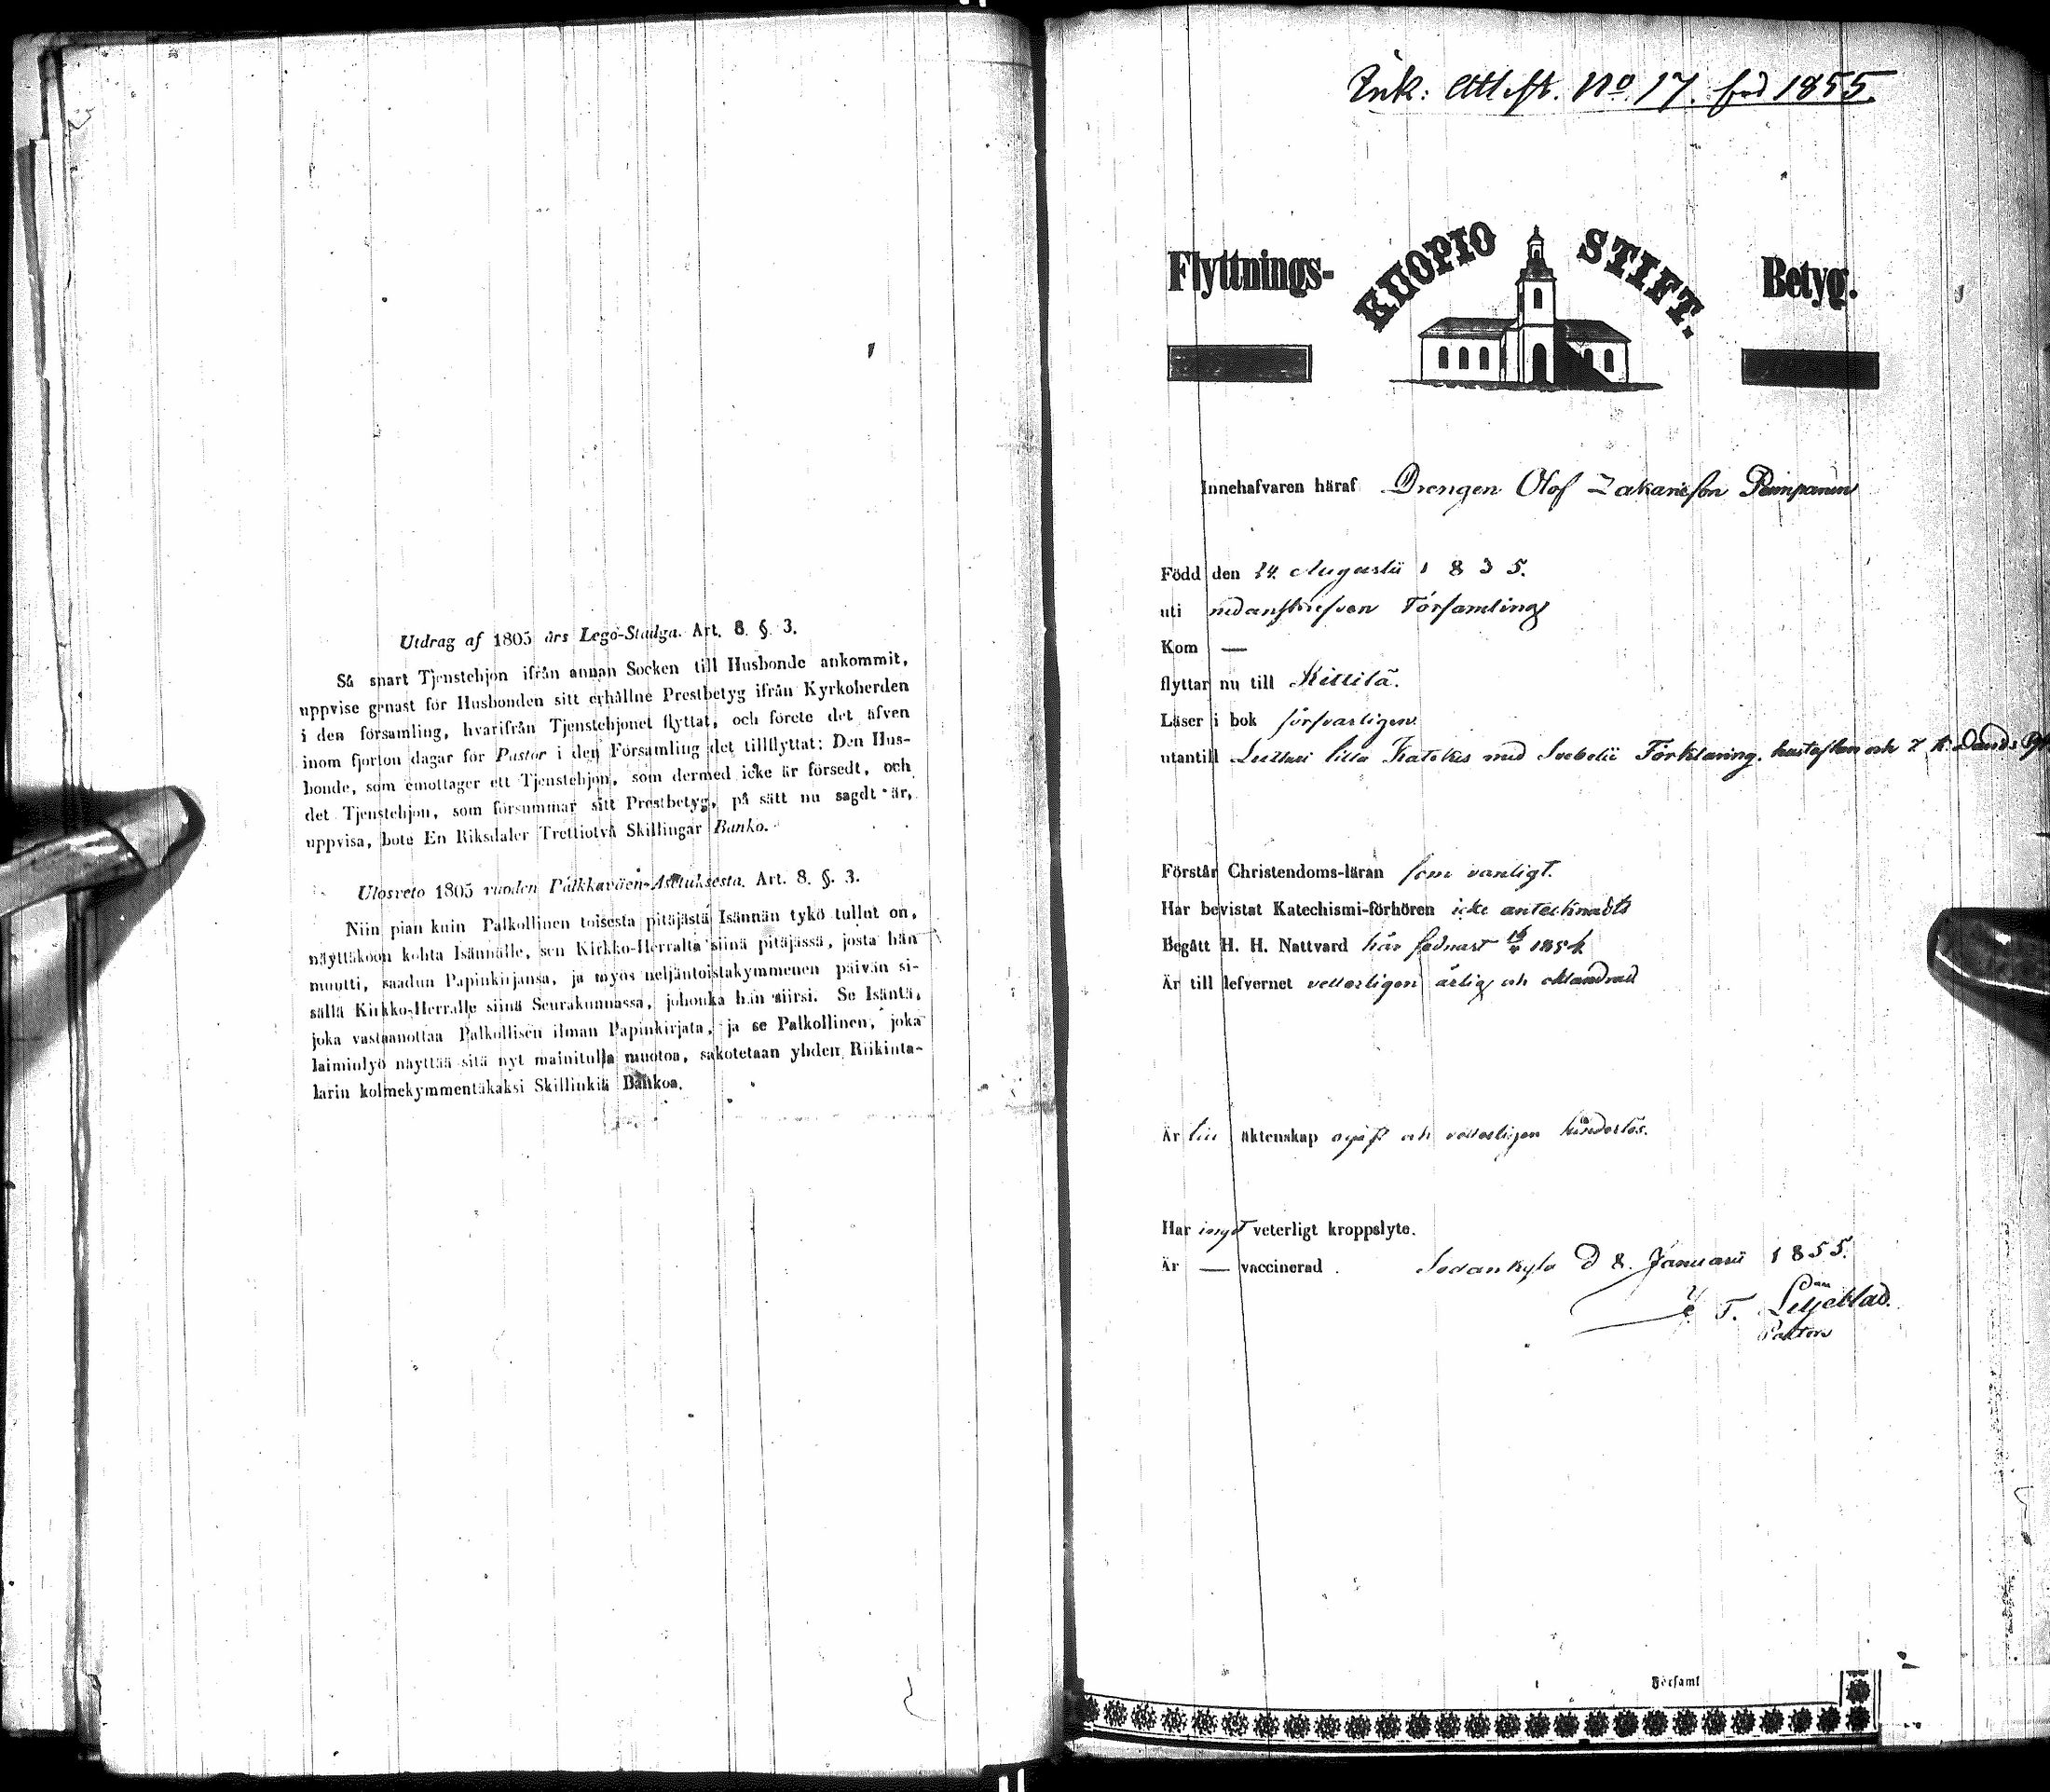 Utdrag af 1805 års Lego-Stadga. Art. 8. §. 3.
Så snart Tjenstehjon ifrån annan Socken till Husbonde ankommit,
uppvise genast för Husbonden sitt erhållne Prestbetyg ifrån Kyrkoherden
i den församling, hvarifrån Tjenstehjonet flyttat, och förete det äfven
inom fjorton dagar för Pastor i den Församling det tillflyttat: Den Hus-
bonde, som emottager ett Tjenstehjon, som dermed icke är försedt, och
det Tjenstehjon, som försummar sitt Prestbetyg, på sätt nu sagdt är,
uppvisa, bote En Riksdaler Trettiotvå Skillingar Banko.
Ulosveto 1805 vuoden Palkkaväen-Asetuksesta. Art. 8. §. 3.
Niin pian kuin Palkollinen toisesta pitäjästä Isännän tykö tullut on,
näyttäköön kohta Isännälle, sen Kirkko-Herralta siinä pitäjässä, josta hän
muutti, saadun Papinkirjansa, ja myös neljäntoistakymmenen päivän si-
sällä Kirkko-Herralle siinä Seurakunnassa, johonka hän siirsi. Se Isäntä,
joka vastaanottaa Palkollisen ilman Papinkirjata, ja se Palkollinen, joka
laiminlyö näyttää sitä nyt mainitulla muotoa, sakotetaan yhden Riikinta-
larin kolmekymmentäkaksi Skillinkiä Bankoa.
Ink: Attest. No. 17. 1855.
Flyttnings- KUOPIO STIFT. Betyg.
Innehafvaren häraf Drengen Olof Zakariesson
Född den 24. Augustii 1835.
uti nedanskrefven Församling
Kom —
flyttar nu till Kittilä.
Läser i bok försvarligen
utantill Lutheri lilla Katekes med Svebelii Förklaring, hustaflan och 7 k. Davids
Förstår Christendoms-läran som vanligt.
Har bevistat Katechismi-förhören icke antecknadts
Begått H. H. Nattvard här sednast 1854
Är till lefvernet vetterligen ärlig och oklandrad
Är till äktenskap ogift och vetterligen hinderlös.
Har inget veterligt kroppslyte.
Är — vaccinerad. Sodankylä d 8. Januarii 1855.
T. Liljeblad.
Pastor
Församl